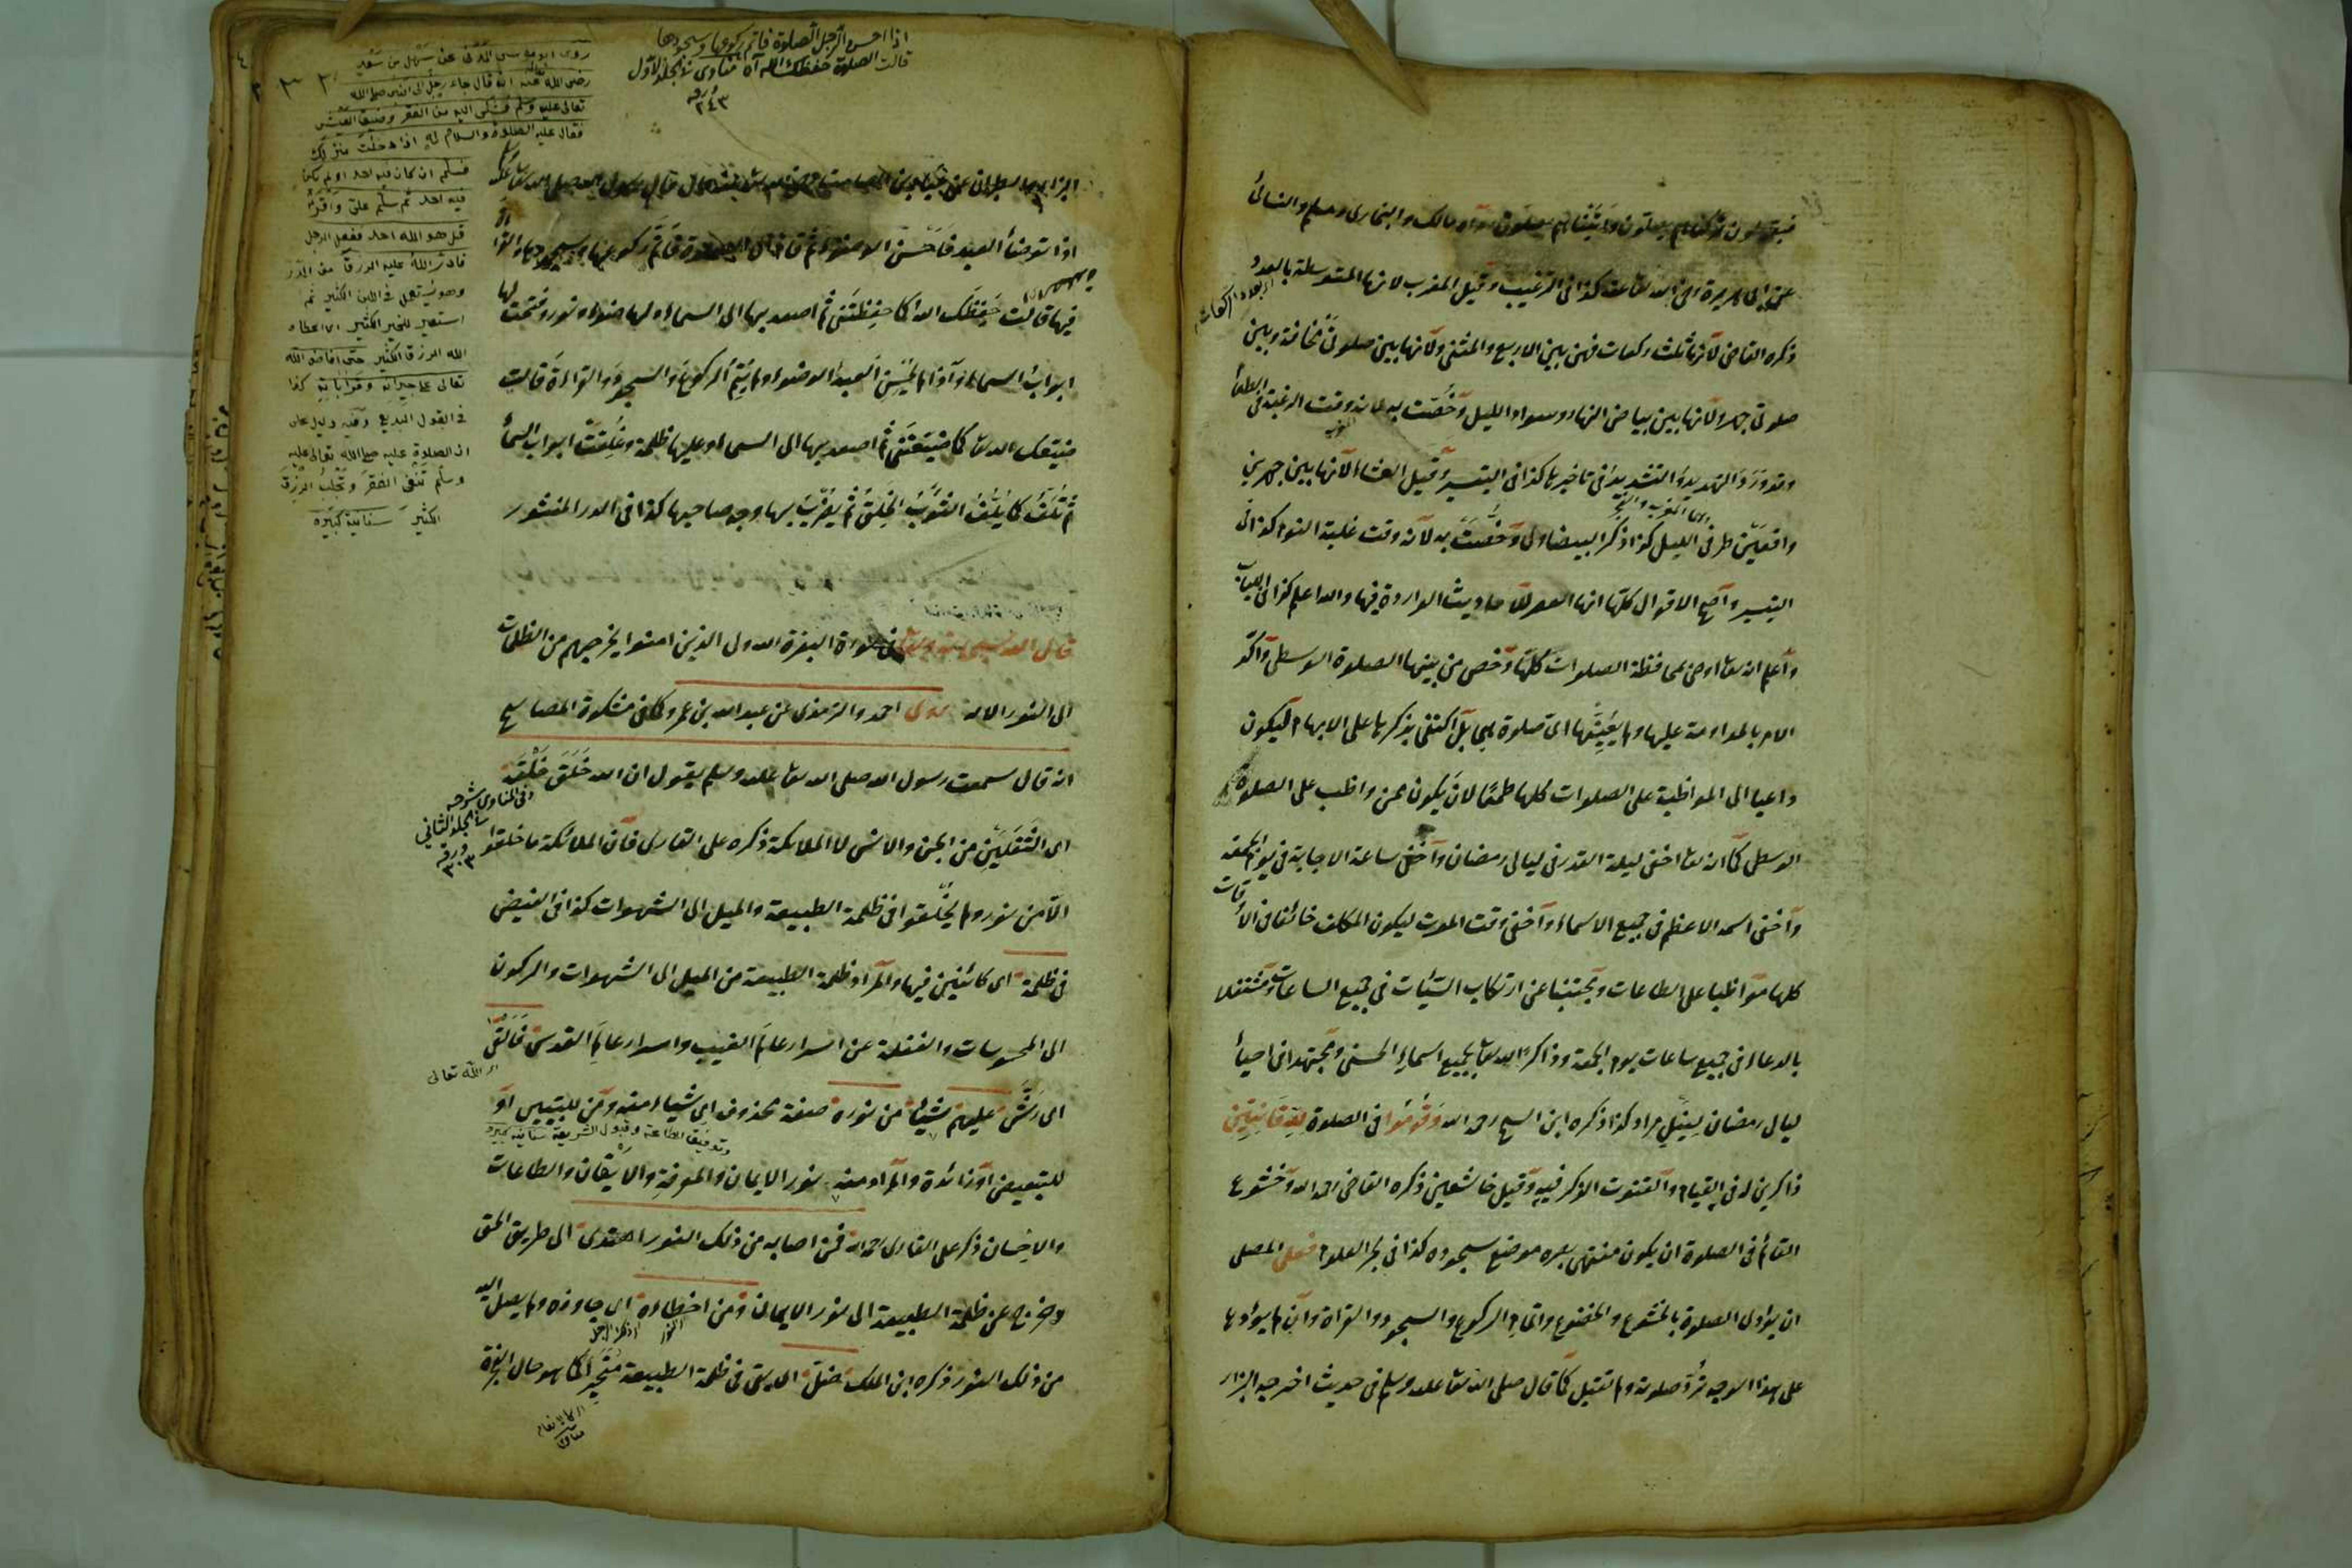 فيقولون تركناهم يصلون واتيناهم يصلون رواه مالك والبخارى ومسلم والنسائى
عن ابى هريرة رضى الله تعا عنه كذا فى الترغيب وقيل المغرب لانها المتوسطة بالعدد
ذكره القاضى لانها ثلث ركعات فهن بين الاربع والمثنى ولانها بين صلوتى مخافتة وبين
صلوتى جهر ولانها بين بياض النهار وسواد الليل وخصت به لانه وقت الرغبة فى الطعام
وقد ورد التهديد والتشديد فى تاخيرها كذا فى التيسير وقيل العشاء لانها بين جهرين
اى المغرب والفجر
واقعتين طرفى الليل كذا ذكر البيضاوى وخصت به لانه وقت غلبة النوم كذا فى
التيسير واصح الاقوال كلها انها العصر للاحاديث الواردة فيها والله اعلم كذا فى اللباب
واعلم انه تعا اوصى بمحافظة الصلوات كلها وخص من بينها الصلوة الوسطى واكد
الامر بالمداومة عليها ولم يعينها اية صلوة هى بل اكتفى بذكرها على الابهام ليكون
داعيا الى المواظبة على الصلوات كلها طمعا لان يكون ممن واظب على الصلوة
الوسطى كما انه تعا اخفى ليلة القدر فى ليالى رمضان واخفى ساعة الاجابة فى يوم الجمعة
واخفى اسمه الاعظم فى جميع الاسماء واخفى وقت الموت ليكون المكلف خائفا فى الاوقات
كلها مواظبا على الطاعات ومجتنبا عن ارتكاب السيئات فى جميع الساعات ومشتغلا
بالدعاء فى جميع ساعات يوم الجمعة وذاكرا الله تعا بجميع اسماء الحسنى ومجتهدا فى احياء
ليالى رمضان لينيل مراد كذا ذكره ابن الشيخ رحمه الله وقوموا فى الصلوة لله قانتين
ذاكرين له فى القيام والقنوت الذكر فيه وقيل خاشعين ذكره القاضى رحمه الله وخشوع
القائم فى الصلوة ان يكون منتهى بصره موضع سجوده كذا فى بحر العلوم فعلى المصلى
ان يؤدى الصلوة بالخشوع والخضوع واتمام الركوع والسجود والقراءة وان لم يؤدها
على هذا الوجه ترد صلوته ولم تقبل كما قال صلى الله تعا عليه وسلم فى حديث اخرجه البزار
اذا احسن الرجل الصلوة فاتم ركوعها وسجودها
قالت الصلوة حفظك الله اه مناوى فى الجلد الاول
ورقه ٢٤٣
روى ابو موسى المدنى عن سهل بن سعد
رضى الله تعالى عنه انه قال جاء رجل الى النبى صلى الله
تعالى عليه وسلم فشكى اليه من الفقر وضيق العيش
فقال عليه الصلوة والسلام له اذا دخلت منزلك
فسلم ان كان فيه احد او لم يكن
فيه احد ثم سلم على واقرأ
قل هو الله احد ففعل الرجل
فادر الله عليه الرزق من الدر
وهو يستعمل فى اللبن الكثير ثم
استعير للخير الكثير اى اعطاه
الله الرزق الكثير حتى افاض الله
تعالى على جيرانه وقراباته كذا
فى القول البديع وفيه دليل على
ان الصلوة عليه صلى الله تعالى عليه
وسلم تنفى الفقر وتجلب الرزق
الكثير سنانية كبيره
البزار والطبرانى عن عبادة بن الصامت رضى الله تعا عنه قال قال رسول الله صلى الله تعا عليه وسلم
اذا توضأ العبد فاحسن الوضوء ثم قام الى الصلوة فاتم ركوعها وسجودها والقراءة
فيها قالت حفظك الله كما حفظتنى ثم اصعد بها الى السماء ولها ضوء ونور وفتحت لها
ابواب السماء واذا لم يحسن العبد الوضوء ولم يتم الركوع والسجود والقراءة قالت
ضيعك الله تعا كما ضيعتنى ثم اصعد بها الى السماء وعليها ظلمة وغلقت ابواب السماء
ثم تلف كما يلف الثوب الخلق ثم يضرب بها وجه صاحبها كذا فى الدر المنثور
قال الله سبحانه وتعا فى سورة البقرة الله ولى الذين امنوا يخرجهم من الظلمات
الى النور الاية روى احمد والترمذى عن عبد الله بن عمرو كما فى مشكوة المصابيح
انه قال سمعت رسول الله صلى الله تعا عليه وسلم يقول ان الله خلق خلقه
وفى المناوى شرحه
فى الجلد الثانى
ورقه ٣٠٣
اى الثقلين من الجن والانس لا الملائكة ذكره على القارى فان الملائكة ما خلقوا
الا من نور ولم يخلقوا فى ظلمة الطبيعة والميل الى الشهوات كذا فى الفيض
فى ظلمة اى كائنين فيها والمراد ظلمة الطبيعة من الميل الى الشهوات والركون
الى المحسوسات والغفلة عن اسرار عالم الغيب واسرار عالم القدس فالقى
اى الله تعالى
اى رش عليهم شيئا من نوره صفة محذوف اى شياء منه ومن للتبيين او
وتوفيق الطاعة وقبول الشريعة سنانيه كبيره
للتبعيض او زائدة والمراد منه نور الايمان والمعرفة والايقان والطاعات
والاحسان ذكر على القارى رحمه الله فمن اصابه من ذلك النور اهتدى الى طريق الحق
وخرج عن ظلمة الطبيعة الى نور الايمان ومن اخطاءه اى جاوزه ولم يصل اليه
من ذلك النور ذكره ابن الملك ضل اى بقى فى ظلمة الطبيعة متحيرا كما هو حال الكفرة